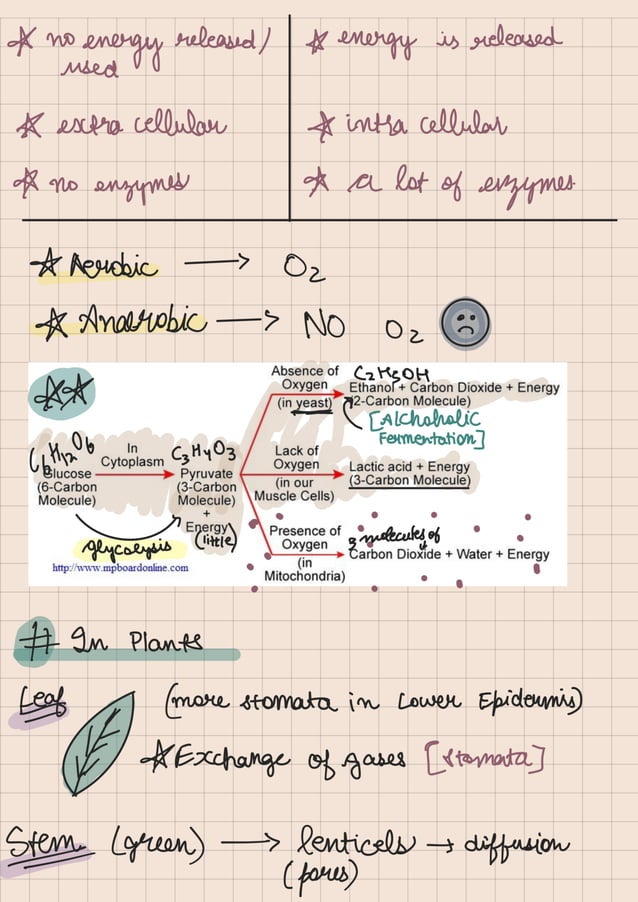 ☆ no energy released/
used
☆ energy is released
☆ extra cellular
☆ intra cellular
☆ no enzymes
☆ a lot of enzymes
☆ Aerobic → O2
☆ Anaerobic → NO O2
☆☆
C6H12O6
Glucose
(6-Carbon
Molecule)
In
Cytoplasm
glycolysis
C3H4O3
Pyruvate
(3-Carbon
Molecule)
+
Energy
(little)
Absence of
Oxygen
(in yeast)
C2H5OH
Ethanol + Carbon Dioxide + Energy
(2-Carbon Molecule)
[Alchoholic
Fermentation]
Lack of
Oxygen
(in our
Muscle Cells)
Lactic acid + Energy
(3-Carbon Molecule)
Presence of
Oxygen
(in
Mitochondria)
3 molecules of
Carbon Dioxide + Water + Energy
http://www.mpboardonline.com
# In Plants
Leaf (more stomata in Lower Epidermis)
☆ Exchange of gases [stomata]
Stem (green) → lenticels → diffusion
(pores)